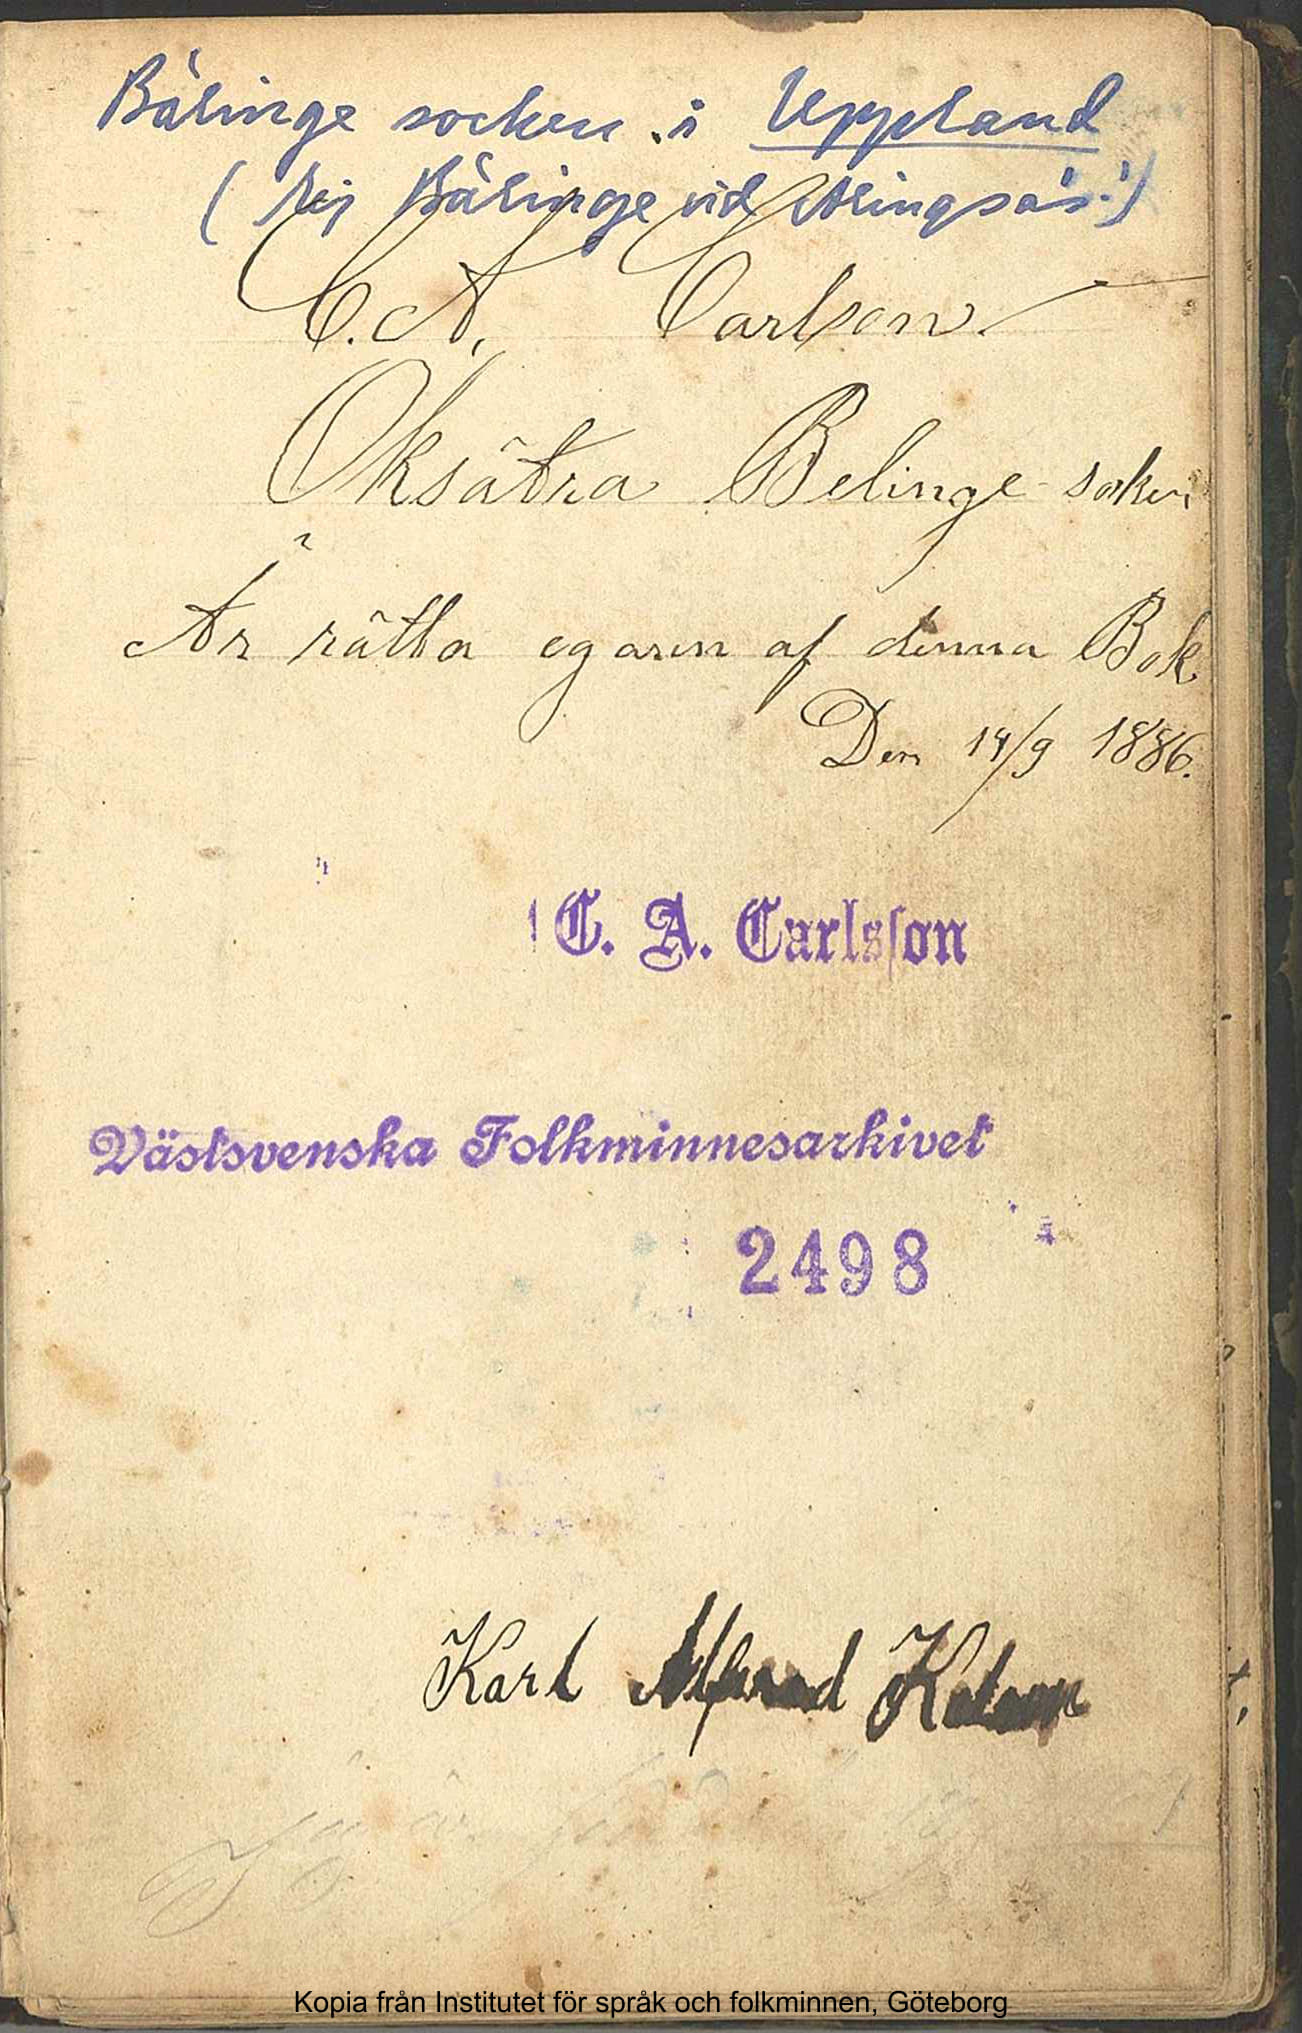 Bälinge socken i Uppland
(Ej Bälinge vid Alingsås!)
C. A. Carlson.
Oksätra Belinge soken
Är rätta egaren af denna Bok.
Den 14/9 1886.
C. A. Carlsson
Västsvenska Folkminnesarkivet
2498
Karl Alfred
Kopia från Institutet för språk och folkminnen, Göteborg